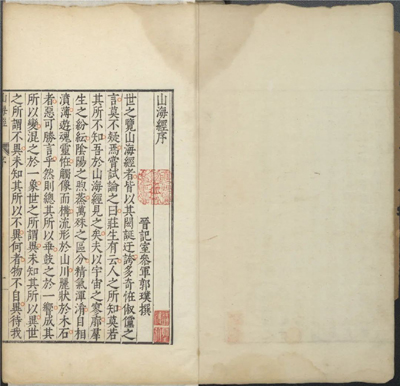 山海經序
晉記室參軍郭璞撰
世之覽山海經者皆以其閎誕迂誇多奇怪俶儻之
言莫不疑焉嘗試論之曰莊生有云人之所知莫若
其所不知吾於山海經見之矣夫以宇宙之寥廓羣
生之紛紜陰陽之煦蒸萬殊之區分精氣渾淆自相
濆薄遊魂靈怪觸像而構流形於山川麗狀於木石
者惡可勝言乎然則總其所以乖鼓之於一響成其
所以變混之於一象世之所謂異未知其所以異世
之所謂不異未知其所以不異何者物不自異待我
山海經
序